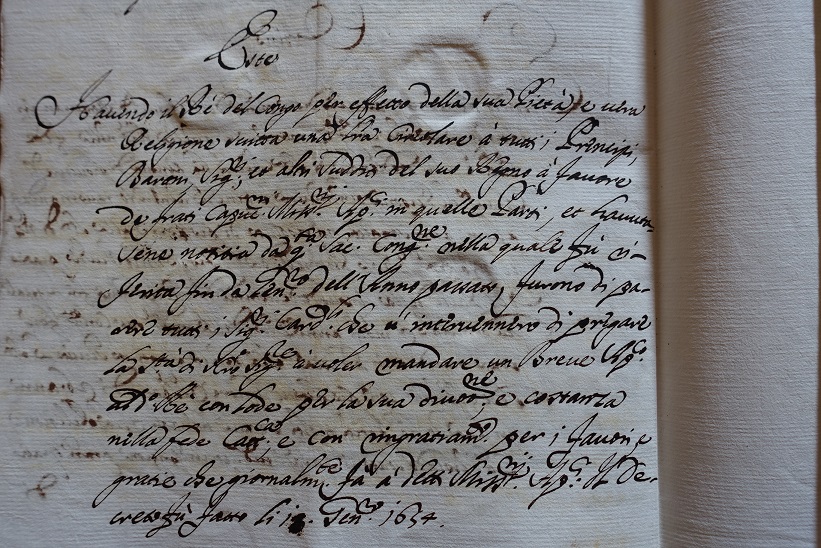 Este
Havendo il Rè del Congo per effetto della sua Pietà, e vera
Religione scritta una lra Circolare à tutti i Principi,
Baroni, Sigri, et altri sudditi del suo Regno à favore
de frati Capucni Missrij Apci in quelle Parti, et havuta-
sene notitia da qta Sac. Congne nella quale fù ri-
ferita fin da Genro dell'Anno passato, furono di pa-
rere tutti i Sigri Cardli che v'intervennero di pregare
la Stà di Nro Sigre à voler mandare un Breve Apco
ad Rè con lode per la sua divotne, e costanza
nella fede Catca, e con ringratiamto per i favori, e
gratie che giornalmte fà à detti Missrij Apci. Il De-
creto fù fatto li Genro 1654.